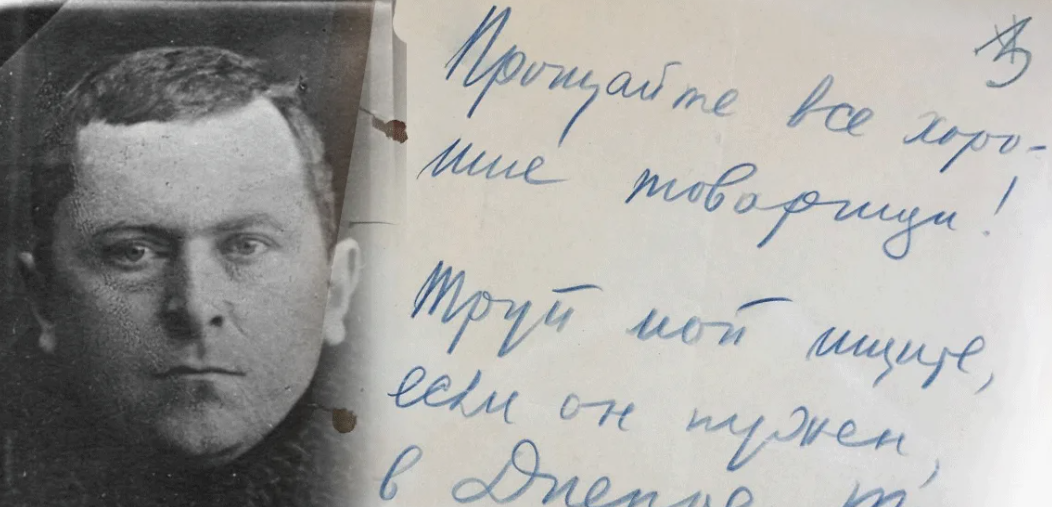 3
Прощайте все хоро-
шие товарищи!
Труп мой ищите,
если он нужен,
в Днепре